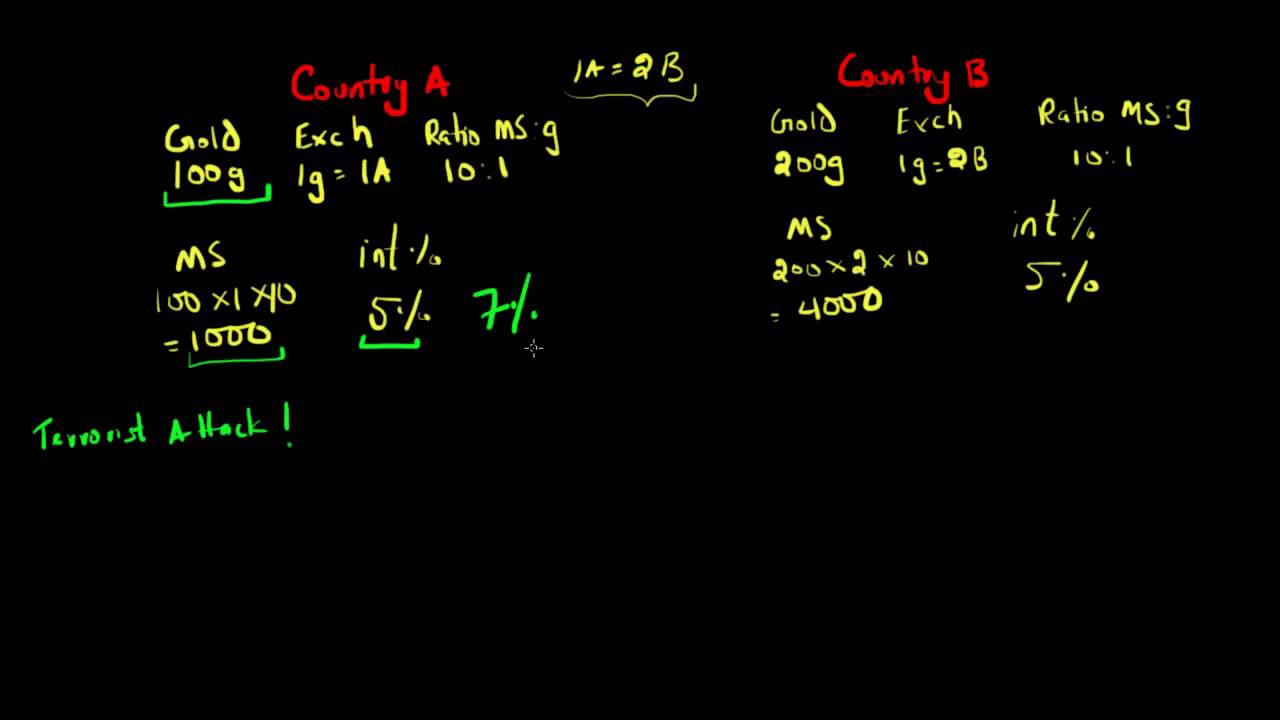 Country A
1A = 2B
Country B
Gold Exch Ratio MS:g
100g 1g = 1A 10:1
Gold Exch Ratio MS:g
200g 1g = 2B 10:1
MS int %
100 x 1 x 10 5% 7%
= 1000
MS int %
200 x 2 x 10 5%
= 4000
Terrorist Attack!